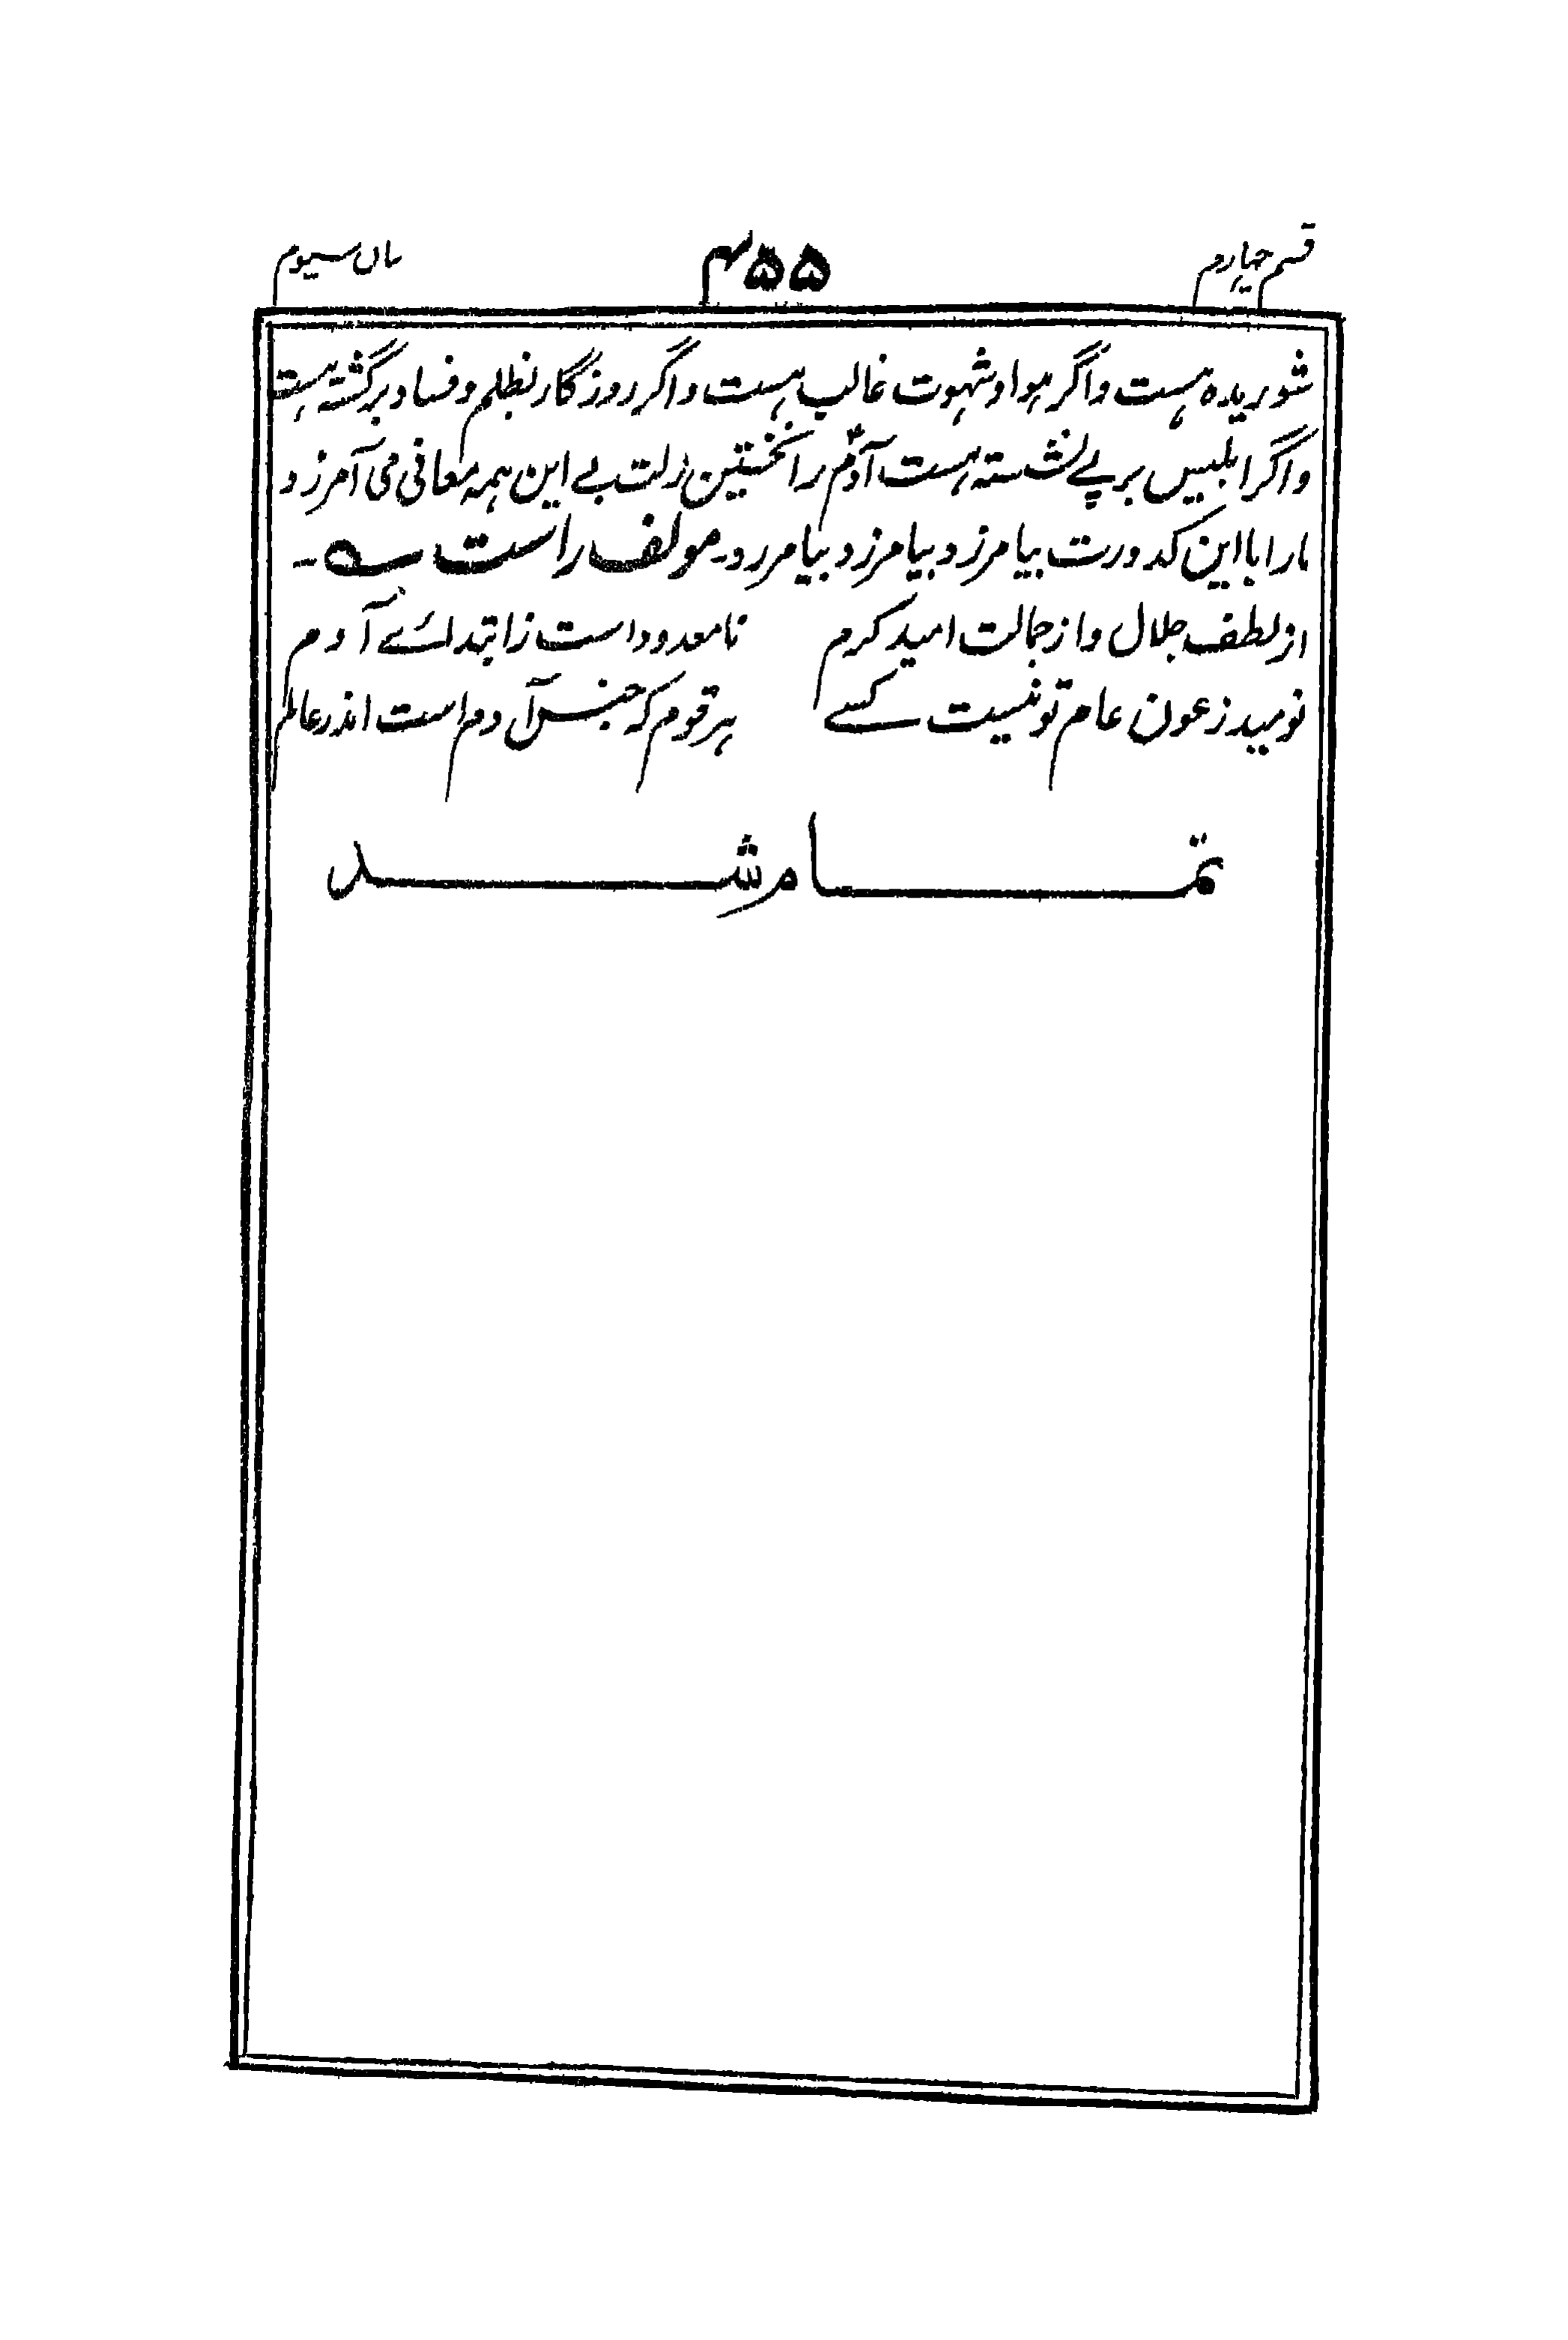 قسم چهارم ۴۵۵ باب سیوم
شوریده هست و اگر هوا و شهوت غالب هست و اگر روزگار بظلم و فساد برگشته هست
و اگر ابلیس بر پے نشسته هست آدمؑ را نخستین زلت بے این همه معافی می آمرزد
مارا با این کدورت بیامرزد بیامرزد بیامرزد۔ مولف راست ے۔
از لطف جلال و از جمالت امید کرم نامعدود است ز ابتدائے آدم
نومید ز عون عام تو نیست کسے هر قوم که جنس آدم است اندر عالم
تمام شد